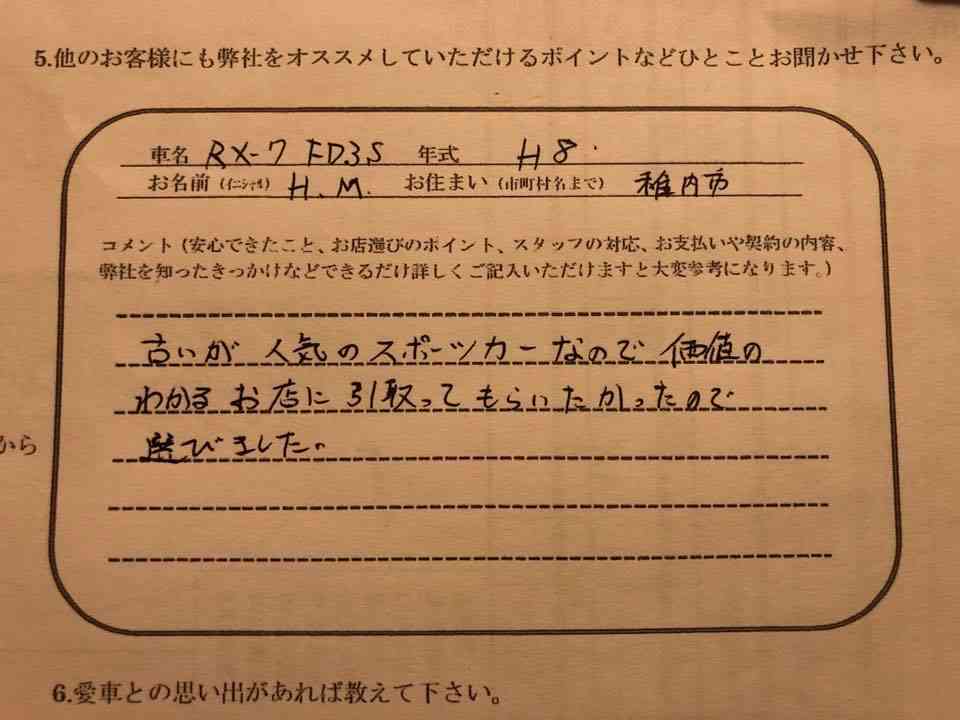 5.他のお客様にも弊社をオススメしていただけるポイントなどひとことお聞かせ下さい。
車名 RX-7 FD3S 年式 H8.
お名前(イニシャル) H.M. お住まい(市町村名まで) 稚内市
コメント(安心できたこと、お店選びのポイント、スタッフの対応、お支払いや契約の内容、
弊社を知ったきっかけなどできるだけ詳しくご記入いただけますと大変参考になります。)
古いが人気のスポーツカーなので価値の
わかるお店に引取ってもらいたかったので
選びました。
から
6.愛車との思い出があれば教えて下さい。